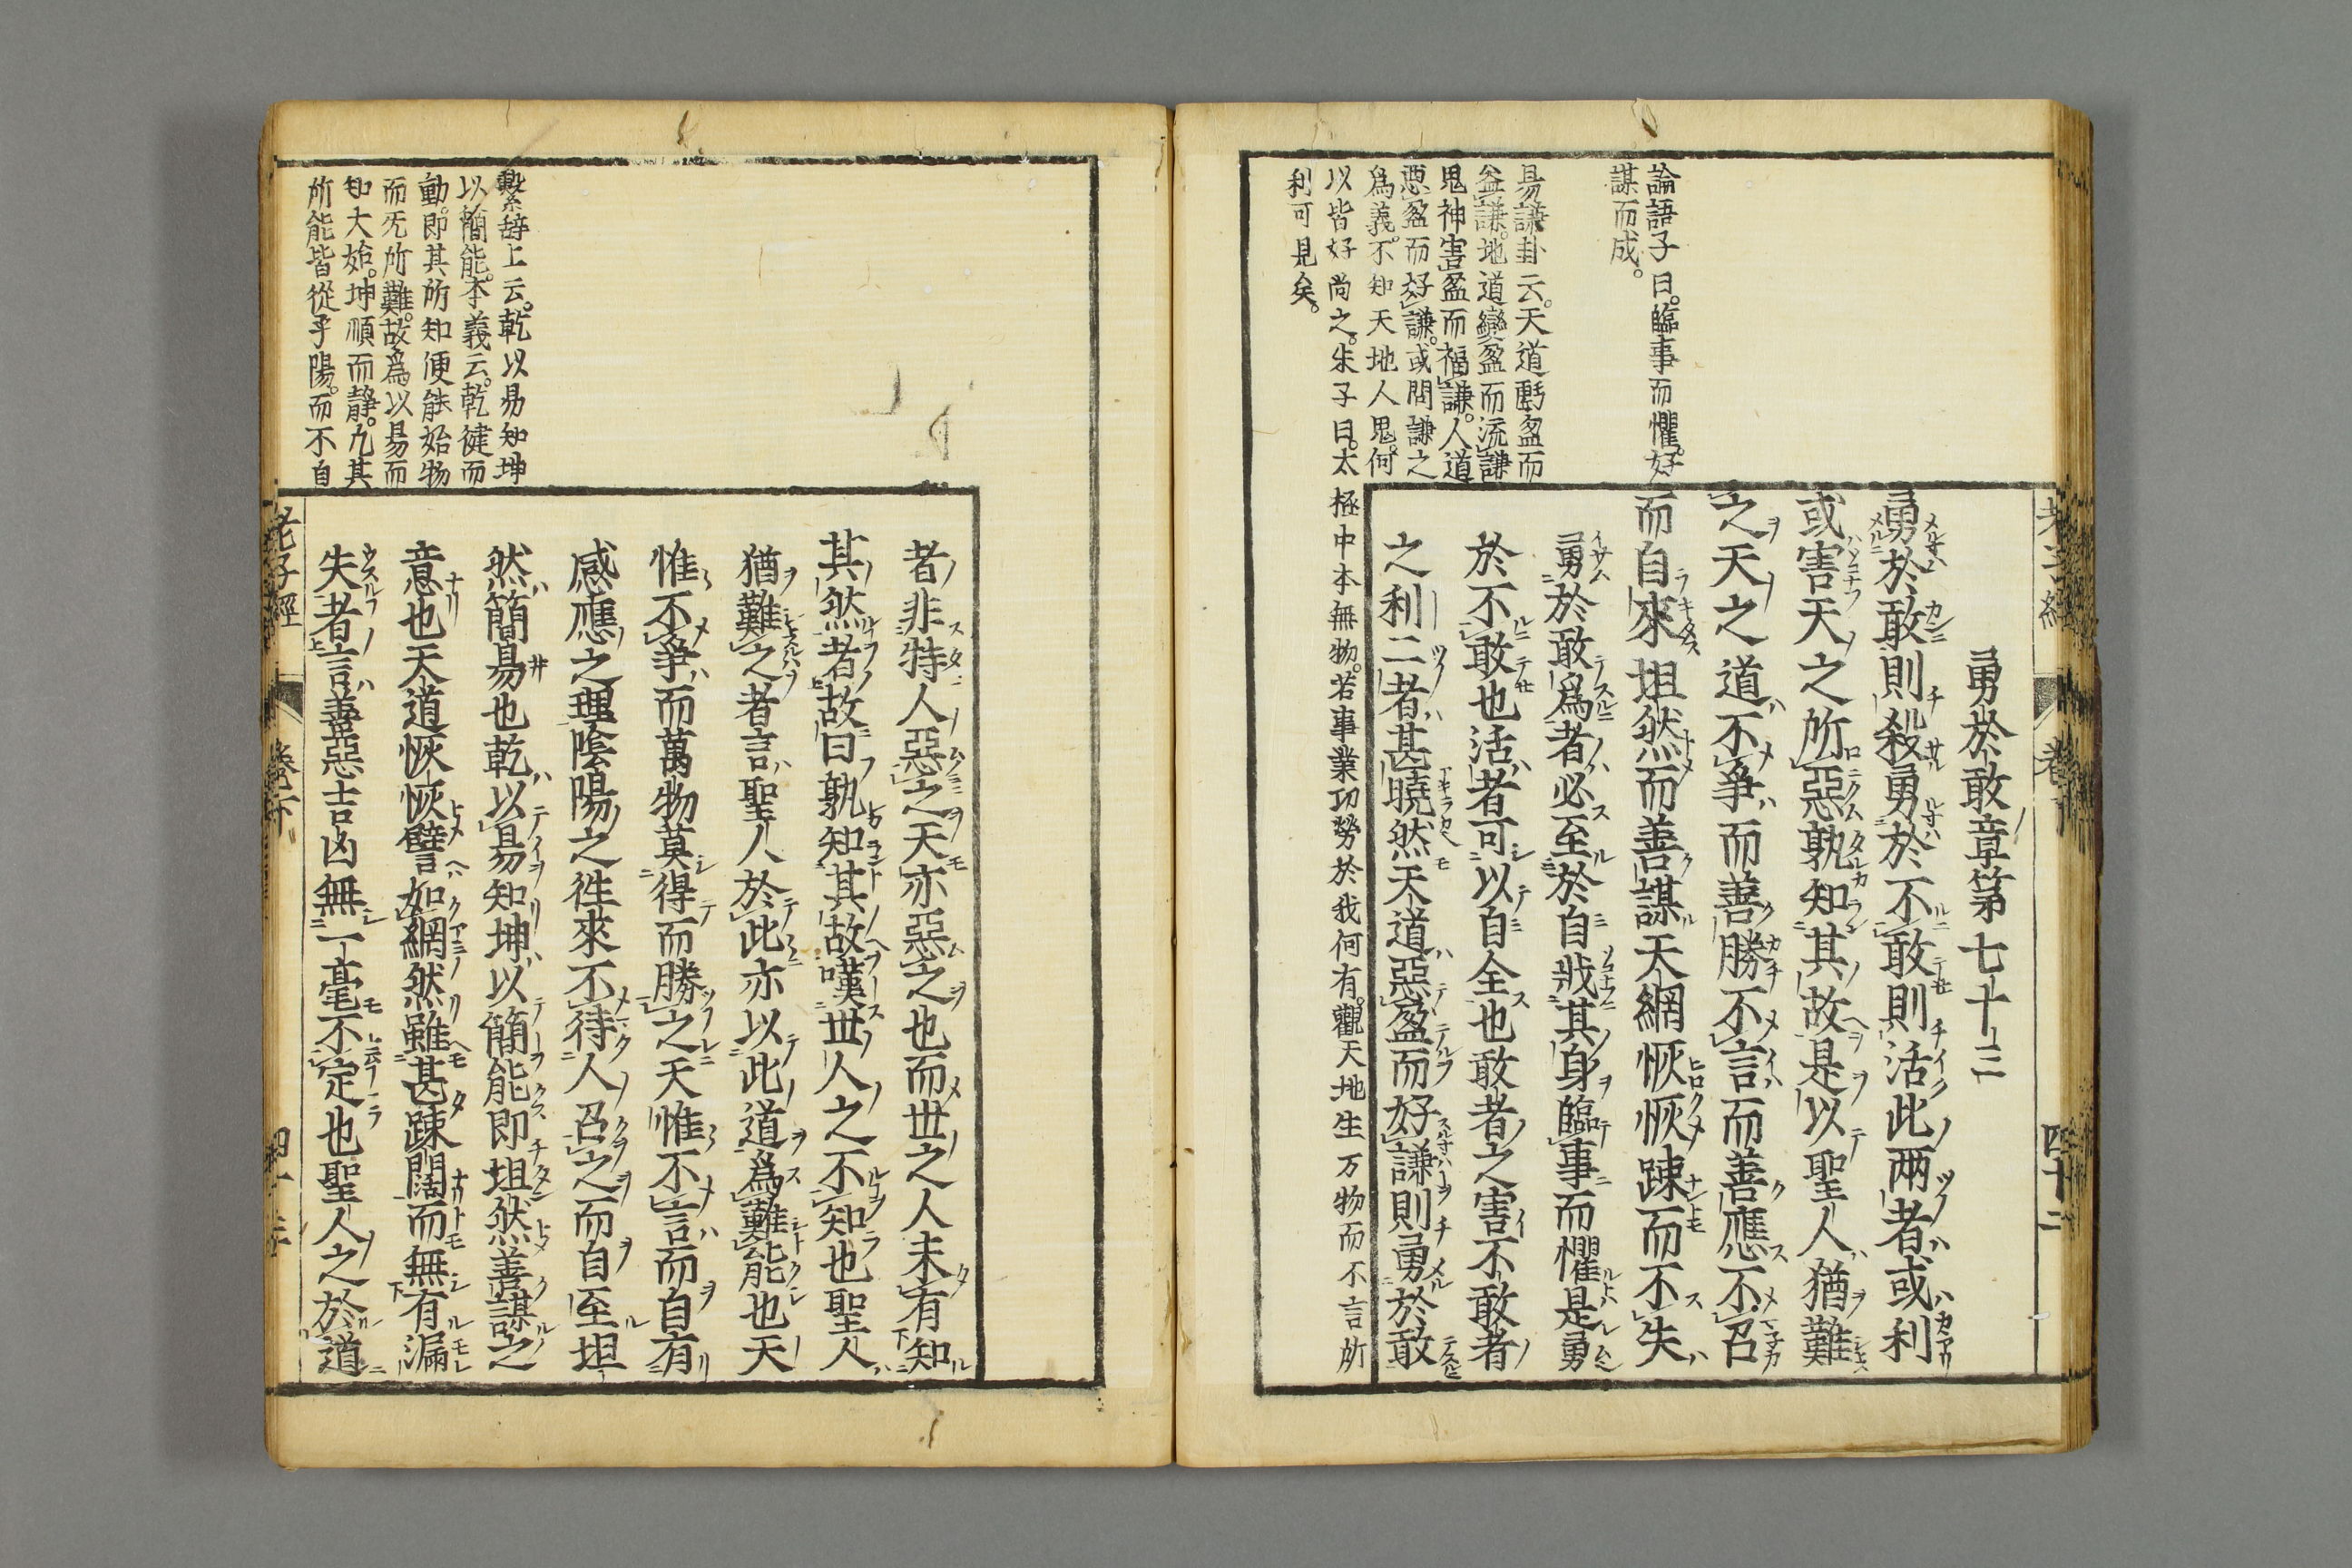 論語子曰。臨事而懼。好
謀而成。
易謙卦云。天道虧盈而
益謙。地道變盈而流謙
鬼神害盈而福謙。人道
惡盈而好謙。或問謙之
爲義。不知天地人鬼。何
以皆好尚之。朱子曰。太極中本無物。若事業功勞於我何有。觀天地生万物而不言所
利可見矣。
勇於敢章第七十三
勇於敢則殺勇於不敢則活此兩者或利
或害天之所惡孰知其故是以聖人猶難
之天之道不爭而善勝不言而善應不召
而自來坦然而善謀天網恢恢踈而不失
勇於敢爲者必至於自戕其身臨事而懼是勇
於不敢也活者可以自全也敢者之害不敢者
之利二者甚曉然天道惡盈而好謙則勇於敢
老子經
四十二
繫辞上云。乾以易知坤
以簡能。本義云。乾健而
動。即其所知便能始物
而旡所難。故爲以易而
知大始。坤順而靜。凢其
所能皆從乎陽。而不自
者非特人惡之天亦惡之也而世之人未有知
其然者故曰孰知其故嘆世人之不知也聖人
猶難之者言聖人於此亦以此道爲難能也天
惟不爭而萬物莫得而勝之天惟不言而自有
感應之理陰陽之徃來不待人召之而自至坦
然簡易也乾以易知坤以簡能即坦然善謀之
意也天道恢恢譬如網然雖甚踈闊而無有漏
失者言善惡吉凶無一毫不定也聖人之於道
老子經
卷下